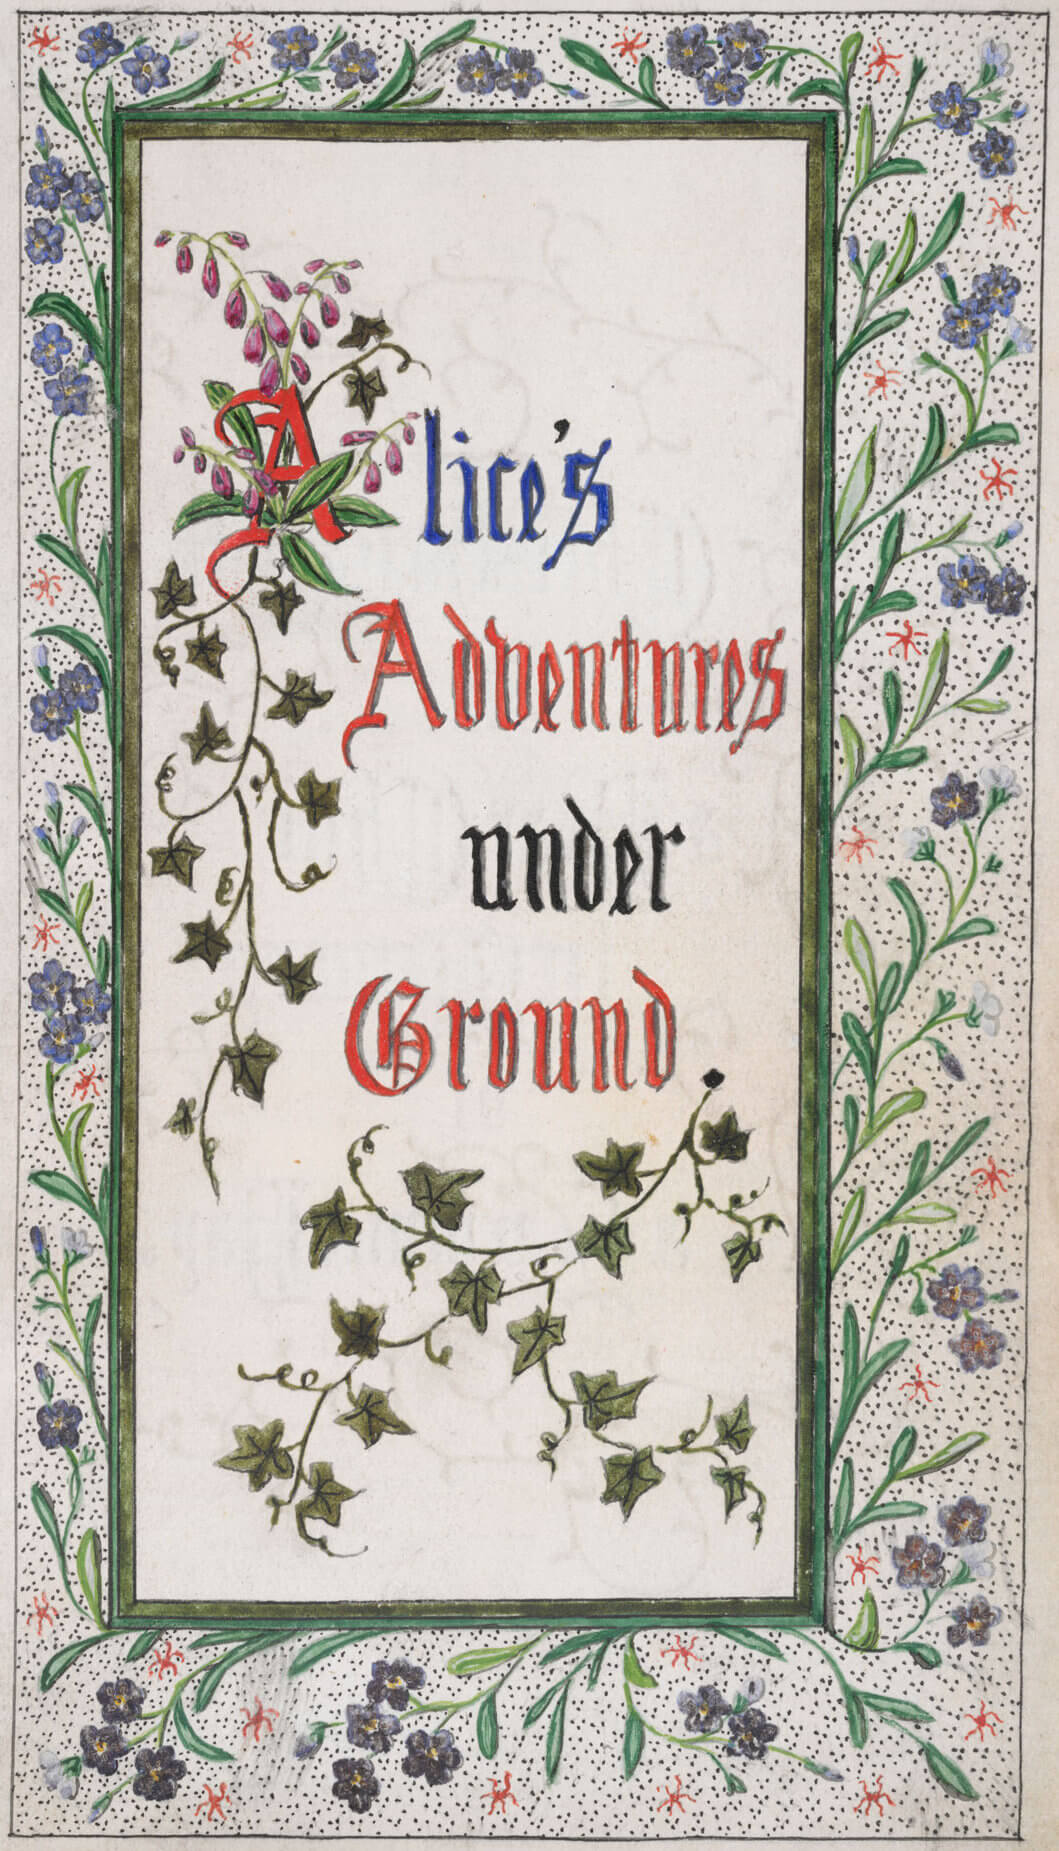 Alice's
Adventures
under
Ground.